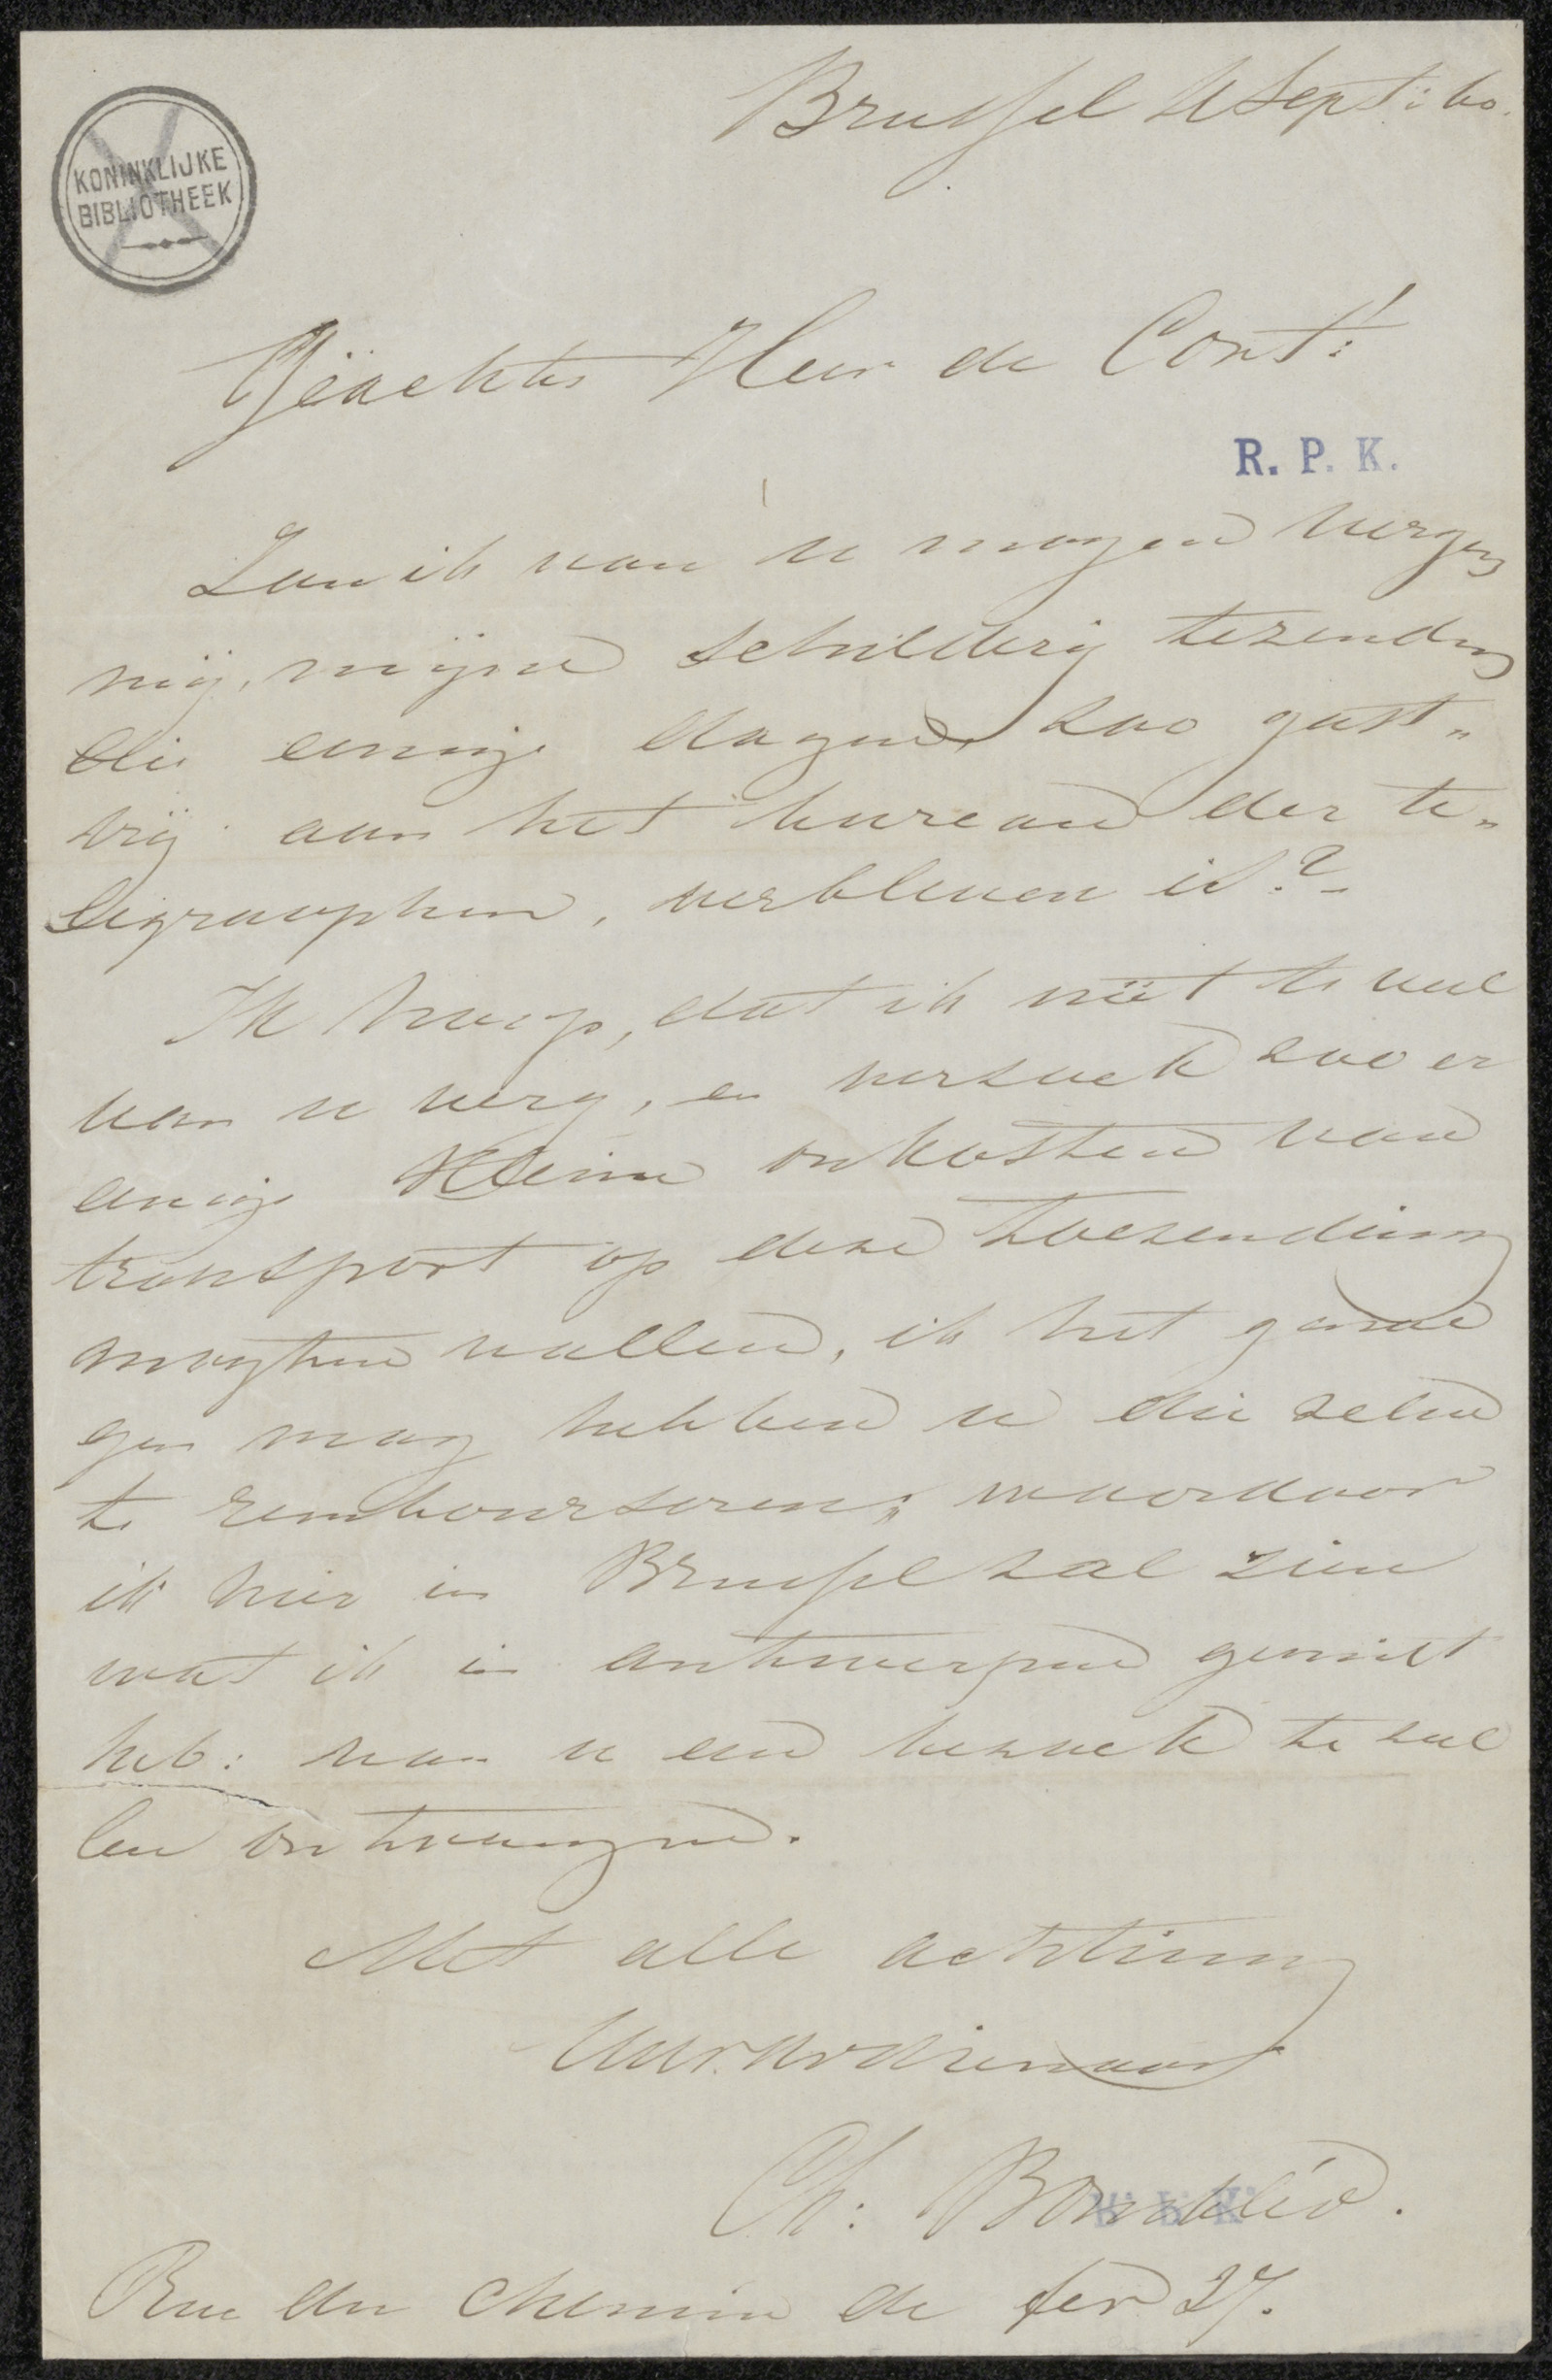 Brussel 11 Sept: 60.
KONINKLIJKE
BIBLIOTHEEK
Geachte Heer de Cort!
R. P. K.
Zou ik van u mogen vergen
mij, mijne schilderij tezenden
die eenige dagen, zoo gast„
vrij aan het bureau der te„
legraaphen, verbleven is?
Ik hoop, dat ik niet te veel
van u verg, en verzoek zoo er
eenige kleine onkosten van
transport op deze toezending
mogten vallen, ik het genoe
gen mag hebben u die zelve
te remboursseren; waardoor
ik hier in Brussel zal zien
wat ik in antwerpen gemist
heb: van u een bezoek te zul
len ontvangen.
Met alle achting
Uw. dv dienaar
Ch:
Rue du Chemin de fer 27.